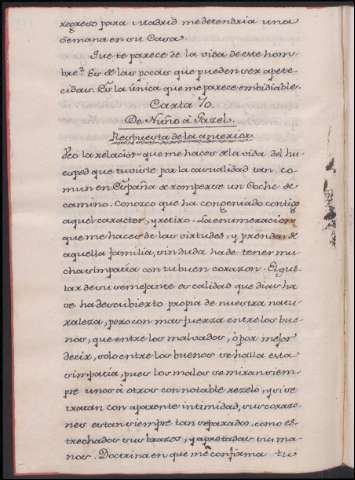 regreso para Madrid me detendria una
semana en su Casa.
Que te parece de la vida de este hom-
bre? Es de las pocas que pueden ser apete-
cidas. Es la unica que me parece embidiable.
Carta 70.
De Nuño á Gazel.
Respuesta de la anterior.
Veo la relacion que me haces de la vida del hu-
esped que tuviste por la casualidad tan co-
mun en España de romperse un Coche de
camino. Conozco que ha congeniado contigo
aquel caracter, y retiro. La enumeracion
que me haces de las virtudes, y prendas de
aquella familia, sin duda ha de tener mu-
cha simpatia con tu buen corazon. El gus-
tar de su semejante es calidad que dias ha
se ha descubierto propia de nuestra natu-
raleza, pero con mas fuerza entre los bue-
nos, que entre los malvados, ó por mejor
decir, solo entre los buenos se halla esta
simpatia, pues los malos se miran siem-
pre unos á otros con notable rezelo, y si se
tratan con aparente intimidad, sus corazo-
nes estan siempre tan separados, como es-
trechados sus brazos, y apretadas sus ma-
nos. Doctrina en que me confirma tu